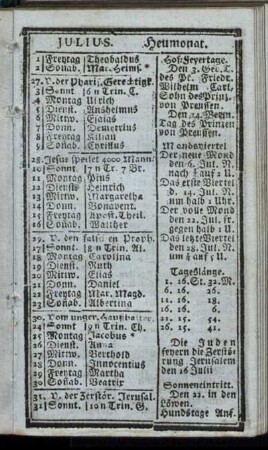 JULIUS. Heumonat.
1 Freytag Theobaldus
2 Sonab. Mar. Heims.
27. V. der Phariſ. Gerechtigk.
3 Sonnt 6 n Trin. C.
4 Montag Ulrich
5 Dienst. Anshelmus
6 Mittw. Eſaias
7 Donn. Demetrius
8 Freytag Kilian
9 Sonab. Cyrillus
28. Jesus speiset 4000 Mann.
10 Sonnt 7 n Tr. 7 Br.
11 Montag Pius
12 Dienst. Heinrich
13 Mittw. Margaretha
14 Donn. Bonavent.
15 Freytag Apost. Theil.
16 Sonab. Walther
29. V. den falschen Proph.
17 Sonnt. 8 n Trin. Al.
18 Montag Carolina
19 Dienst. Ruth
20 Mittw. Elias
21 Donn. Daniel
22 Freytag Mar. Magd.
23 Sonab. Albertina
30. Vom unger. Haushalter.
24 Sonnt 9 n Trin. Ch.
25 Montag Jacobus
26 Dienst. Anna
27 Mittw. Berthold
28 Donn. Innocentius
29 Freytag Martha
30 Sonab. Beatrix
31. V. der Zerstör. Jerusal.
31 Sonnt. 10 n Trin. G.
Hof-Feyertage.
Den 3. Geb. T.
des Pr. Friedr.
Wilhelm Carl,
Sohn des Prinz.
von Preussen.
Tag des Prinzen
von Preussen.
Mondsviertel
Der neue Mond
den 6. Jul. N.
nach ¾ auf 2 U.
Das erste Viertel
d. 14. Jul. N.
um halb 1 Uhr.
Der volle Mond
den 22. Jul. fr.
gegen halb 7 U.
Das letzte Viertel
den 28. Jul. N.
um ¾ auf 5 U.
Tageslänge.
1. 16 St. 32. M.
6. 16. 26.
11. 16. 16.
16. 16. 6.
22. 15. 54.
26. 15. 41.
Die Juden
feyern die Zerstö-
rung Jerusalem
den 26 Julii
Sonneneintritt.
Den 22. in den
Löwen.
Hundstage Anf.